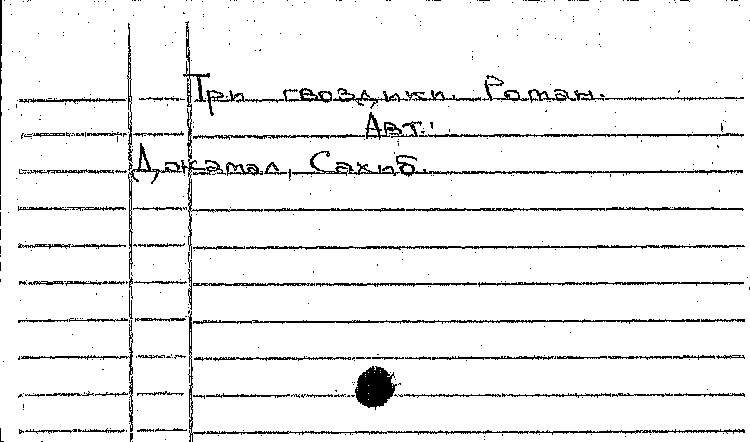 Три гвоздики. Роман.
Авт.:
Джамал, Сахиб.